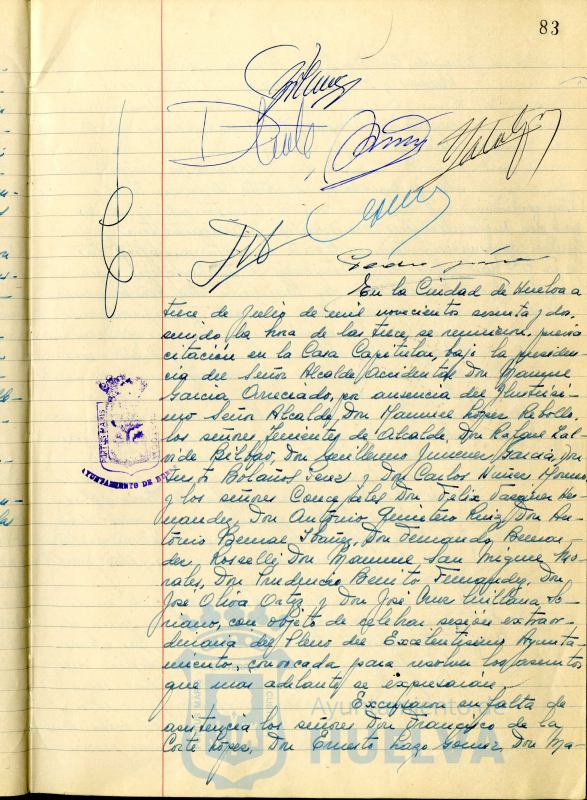 83
En la Ciudad de Huelva a
trece de Julio de mil novecientos sesenta y dos,
siendo la hora de las trece, se reunieron, previa
citación en la Casa Capitular, bajo la presiden-
cia del Señor Alcalde Accidental Don Manuel
García Arreciado, por ausencia del Ilustrísi-
mo Señor Alcalde, Don Manuel López Rebollo,
los señores Tenientes de Alcalde, Don Rafael
de Bilbao, Don Guillermo Jimenez García, Don
Bolaños y Don Carlos Núñez
y los señores Concejales Don Felix Vazquez Her-
nandez, Don Antonio Quintero Ruiz, Don An-
tonio Bernal Ibañez, Don Fernando
Rosselli, Don Manuel San Miguel Mo-
rales, Don Prudencio Benito Fernandez, Don
José Oliva Ortiz y Don José So-
riano, con objeto de celebrar sesión extraor-
dinaria del Pleno del Excelentísimo Ayunta-
miento, convocada para resolver los asuntos
que mas adelante se expresarán.
Excusaron su falta de
asistencia los señores Don Francisco de la
Corte López, Don Ernesto Lazo Gomez, Don Ma-
PORTUS MARIS
AYUNTAMIENTO DE
Ayuntamiento de
HUELVA